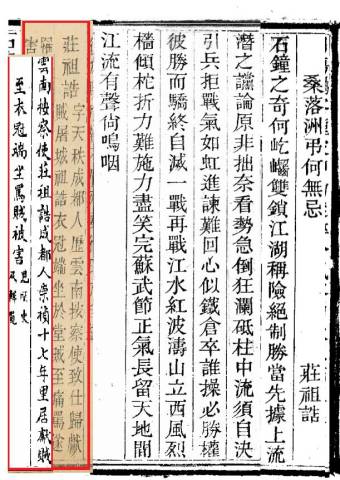 桑落洲弔何無忌
莊祖誥
石鐘之奇何屹雙鎖江湖稱險絕制勝當先據上流
潛之讜論原非拙奈看勢急倒狂瀾砥柱中流須自決
引兵拒戰氣如虹進諫難回心似鐵倉卒誰操必勝權
彼勝而驕終自滅一戰再戰江水紅波濤山立西風烈
檣傾柁折力難施力盡笑完蘇武節正氣長留天地間
江流有聲尙嗚咽
莊祖誥 字天秩成都人歷雲南按察使致仕歸獻
賊屠城祖誥衣冠端坐於堂賊至痛罵遂
害
雲南按察使莊祖誥成都人崇禎十七年里居獻賊
至衣冠端坐罵賊被害